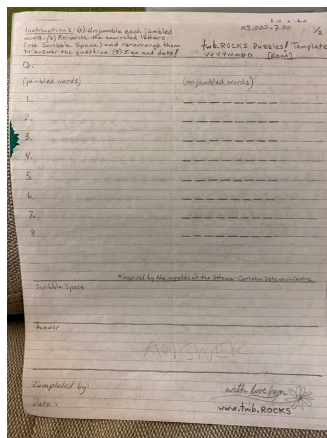 Instructions: (1) Unjumble each jumbled
word. (2) Re-write the encircled letters
(use Scribble Space) and rearrange them
to answer the question (3) Sign and date!
A3.000-7.00
1/2
twb.ROCKS Puzzles! Template
YYYYMMDD
Q.
(jumbled words)
(unjumbled words)
1.
2.
3.
4.
5.
6.
7.
8.
*inspired by the inmates at the Ottawa-Carleton Detention Centre
Scribble Space
Answer
ANSWER
Completed by:
Date:
with love from
www.twb.ROCKS